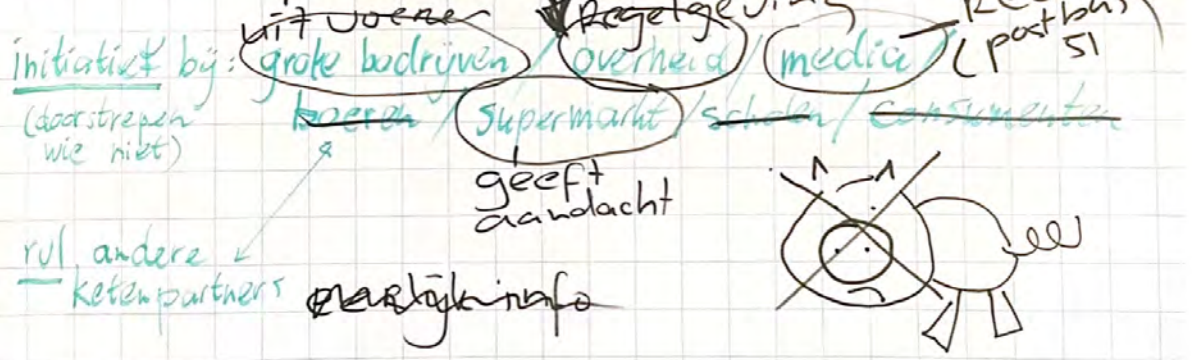 uitvoeren regelgeving
initiatief bij: grote bedrijven / overheid / media / (postbus 51
(doorstrepen wie niet) boeren / supermarkt / scholen / consumenten
geeft aandacht
rol andere ketenpartners
info